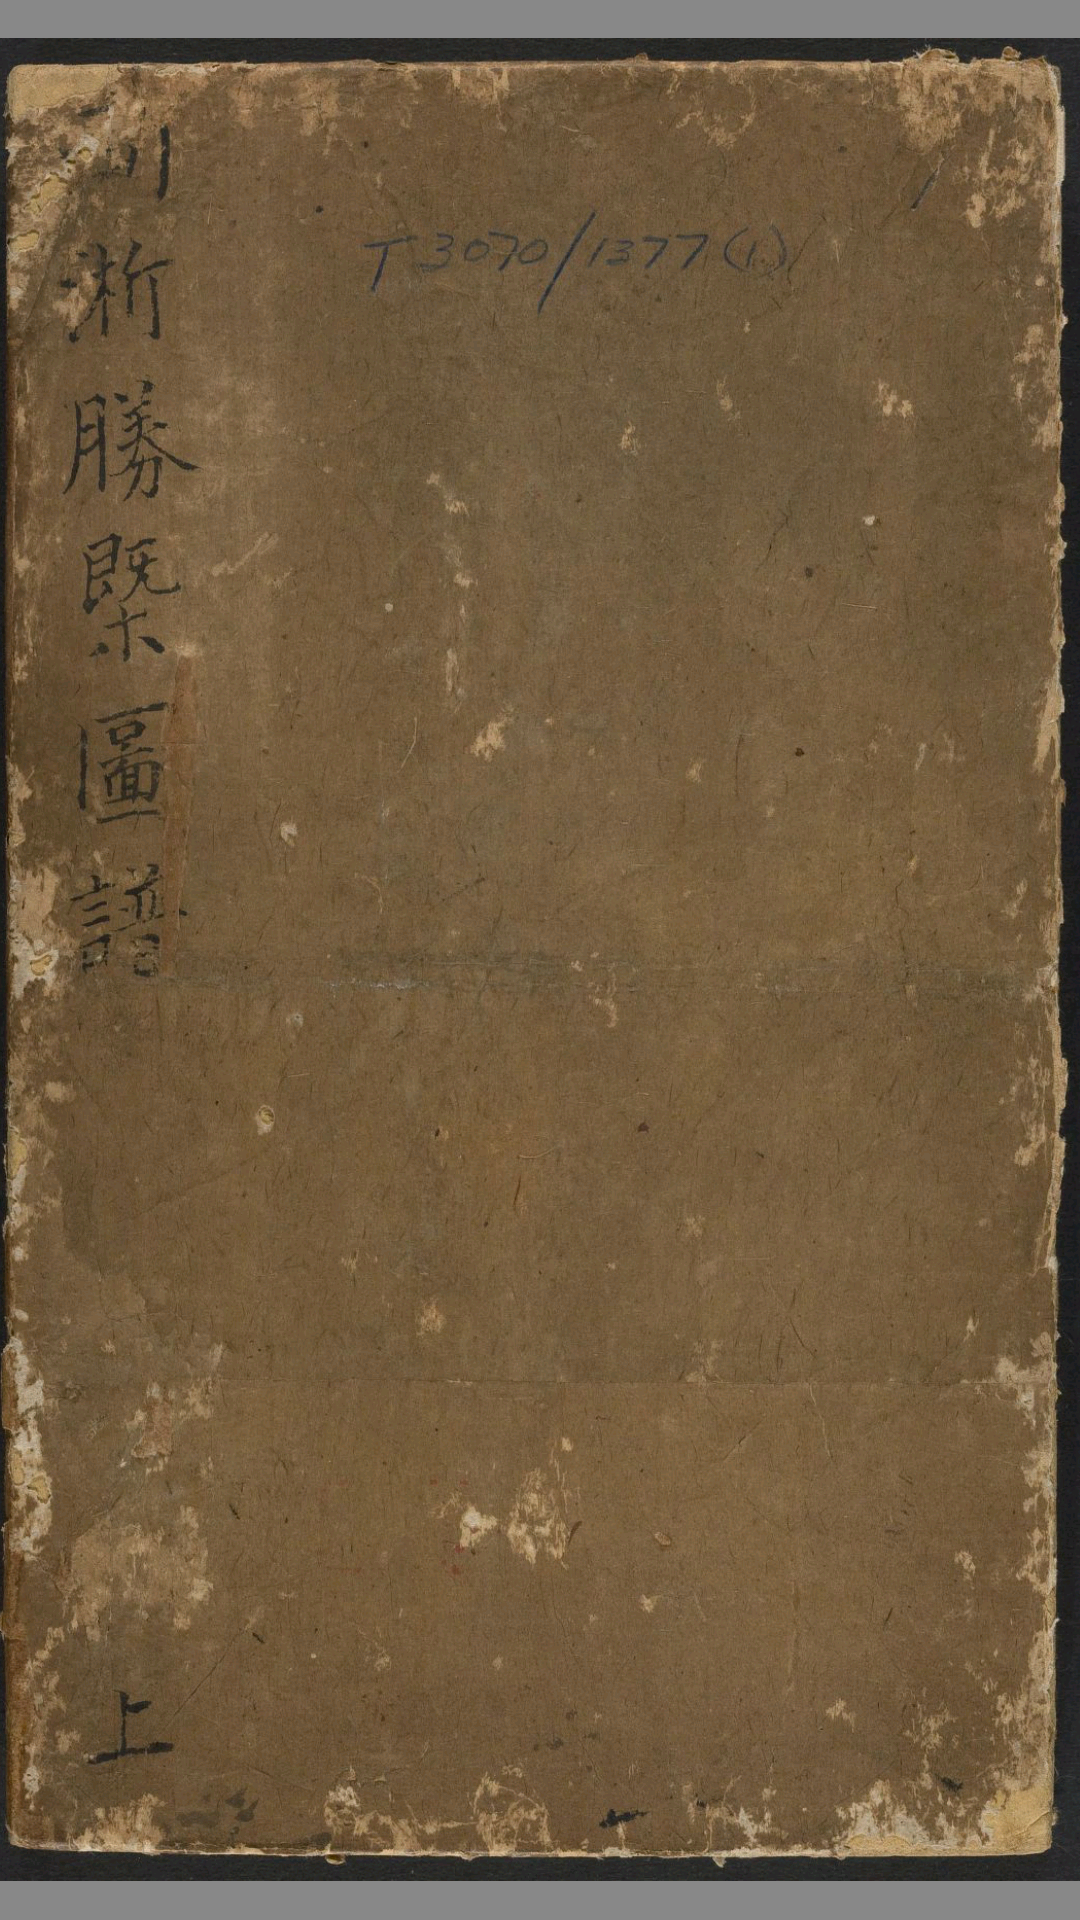 淅勝槩圖譜
上
T 3070/1377(1)